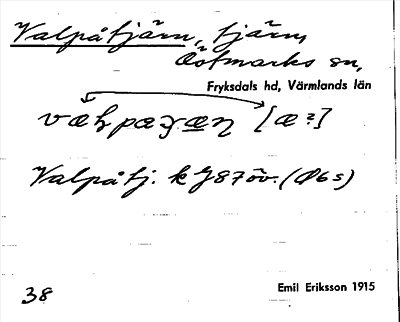 Valpåtjärn, tjärn,
Östmarks sn,
Fryksdals hd, Värmlands län
[æ?]
Valpåtj. k J87öv. (Ø6s)
38
Emil Eriksson 1915